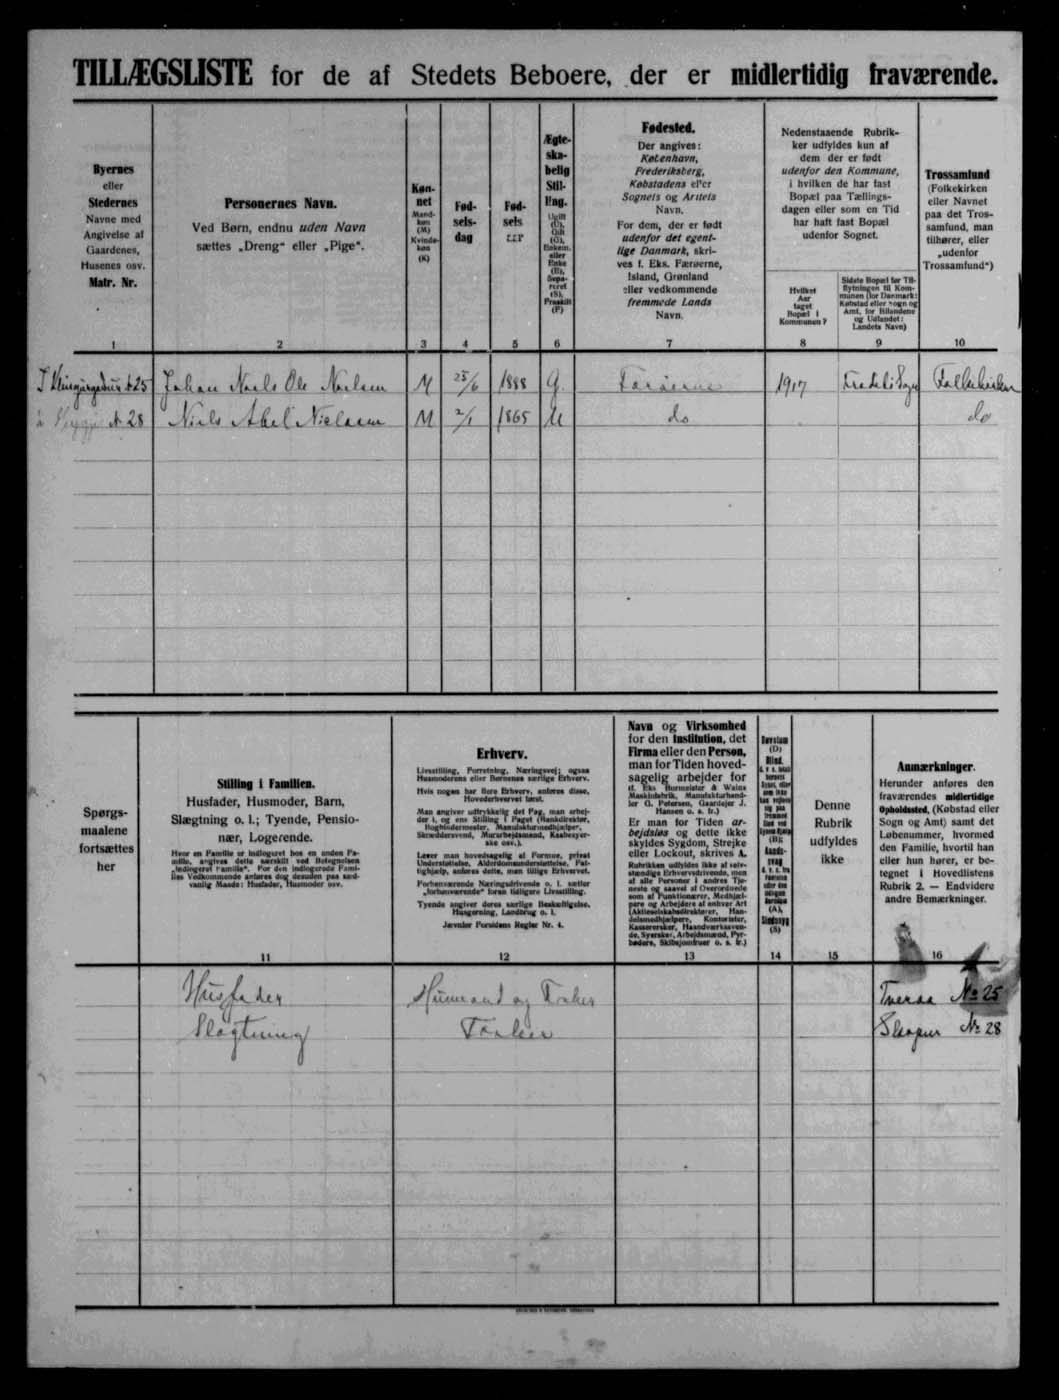 TILLÆGSLISTE for de af Stedets Beboere, der er midlertidig fraværende.
Byernes
eller
Stedernes
Navne med
Angivelse af
Gaardenes,
Husenes osv.
Matr. Nr.
1
Personernes Navn.
Ved Børn, endnu uden Navn
sættes „Dreng“ eller „Pige“.
2
Køn-
net
Mand-
køn
(M)
Kvinde-
køn
(K)
3
Fød-
sels-
dag
4
Fød-
sels
5
Ægte-
ska-
belig
Stil-
ling.
Ugift
(U),
Gift
(G),
Enkem.
eller
Enke
(E),
Sepa-
reret
(S),
Fraskilt
(F)
6
Fødested.
Der angives:
København,
Frederiksberg,
Købstadens eller
Sognets og Amtets
Navn.
For dem, der er født
udenfor det egent-
lige Danmark, skri-
ves f. Eks. Færøerne,
Island, Grønland
eller vedkommende
fremmede Lands
Navn.
7
Nedenstaaende Rubrik-
ker udfyldes kun af
dem der er født
udenfor den Kommune,
i hvilken de har fast
Bopæl paa Tællings-
dagen eller som en Tid
har haft fast Bopæl
udenfor Sognet.
Hvilket
Aar
taget
Bopæl i
Kommunen?
8
Sidste Bopæl før Til-
flytningen til Kom-
munen (for Danmark:
Købstad eller Sogn og
Amt, for Bilandene
og Udlandet:
Landets Navn)
9
Trossamfund
(Folkekirken
eller Navnet
paa det Tros-
samfund, man
tilhører, eller
„udenfor
Trossamfund“)
10
№ 25 Johan Niels Ole Nielsen M 25/6 1888 G. Færøerne 1917 Folkekirken
№ 28 Niels Abel Nielsen M 2/1 1865 U do do
Spørgs-
maalene
fortsættes
her
Stilling i Familien.
Husfader, Husmoder, Barn,
Slægtning o. l.; Tyende, Pensio-
nær, Logerende.
Hvor en Familie er indlogeret hos en anden Fa-
milie, angives dette særskilt ved Betegnelsen
„indlogeret Familie“. For den indlogerede Fami-
lies Vedkommende anføres dog desuden paa sæd-
vanlig Maade: Husfader, Husmoder osv.
11
Erhverv.
Livsstilling, Forretning, Næringsvej; ogsaa
Husmoderens eller Børnenes særlige Erhverv.
Hvis nogen har flere Erhverv, anføres disse,
Hovederhvervet først.
Man angiver udtrykkelig det Fag, man arbej-
der i, og ens Stilling i Faget (Bankdirektør,
Bogbindermester, Manufakturmedhjælper,
Skræddersvend, Murarbejdsmand, Kaabesyer-
ske osv.).
Lever man hovedsagelig af Formue, privat
Understøttelse, Alderdomsunderstøttelse, Fat-
tighjælp, anføres dette, men tillige Erhvervet.
Forhenværende Næringsdrivende o. l. sætter
„forhenværende“ foran tidligere Livsstilling.
Tyende angiver deres særlige Beskæftigelse,
Husgerning, Landbrug o. l.
Jævnfør Forsidens Regler Nr. 4.
12
Navn og Virksomhed
for den Institution, det
Firma eller den Person,
man for Tiden hoved-
sagelig arbejder for
(f. Eks Burmeister & Wains
Maskinfabrik, Manufakturhand-
ler G. Petersen, Gaardejer J.
Hansen o. s. fr.)
Er man for Tiden ar-
bejdsløs og dette ikke
skyldes Sygdom, Strejke
eller Lockout, skrives A.
Rubrikken udfyldes ikke af selv-
stændige Erhvervsdrivende, men
af alle Personer i andres Tje-
neste og saavel af Overordnede
som af Funktionærer, Medhjæl-
pere og Arbejdere af enhver Art
(Aktieselskabsdirektører, Han-
delsmedhjælpere, Kontorister,
Kassererske, Haandværkssven-
de, Syersker, Arbejdsmænd, Fyr-
bødere, Skibsjomfruer o. s. fr.)
13
Døvstum
(D)
Blind,
(B);
Aands-
svag
(A),
Sindssyg
(S)
14
Denne
Rubrik
udfyldes
ikke
15
Anmærkninger.
Herunder anføres den
fraværendes midlertidige
Opholdssted, (Købstad eller
Sogn og Amt) samt det
Løbenummer, hvormed
den Familie, hvortil han
eller hun hører, er be-
tegnet i Hovedlistens
Rubrik 2. — Endvidere
andre Bemærkninger.
16
Husfader Husmand og Fisker Tveraa № 25
Slægtning Fisker № 28